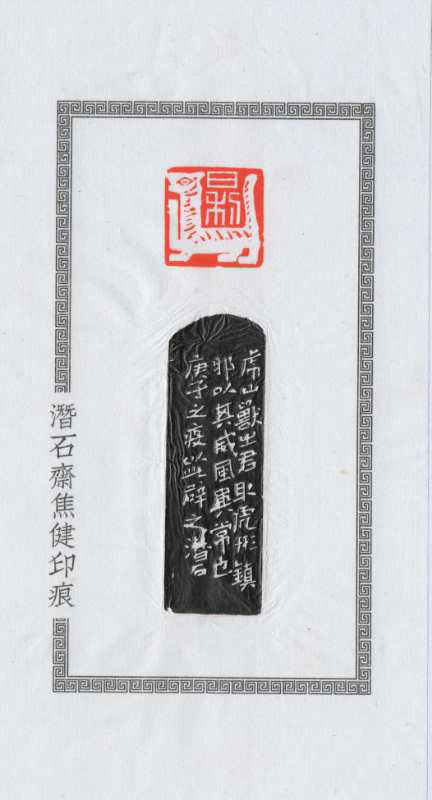 日利
虎山獸之君取虎形鎮
邪以其威風異常也
庚子之疫以此辟之潛石
潛石齋焦健印痕